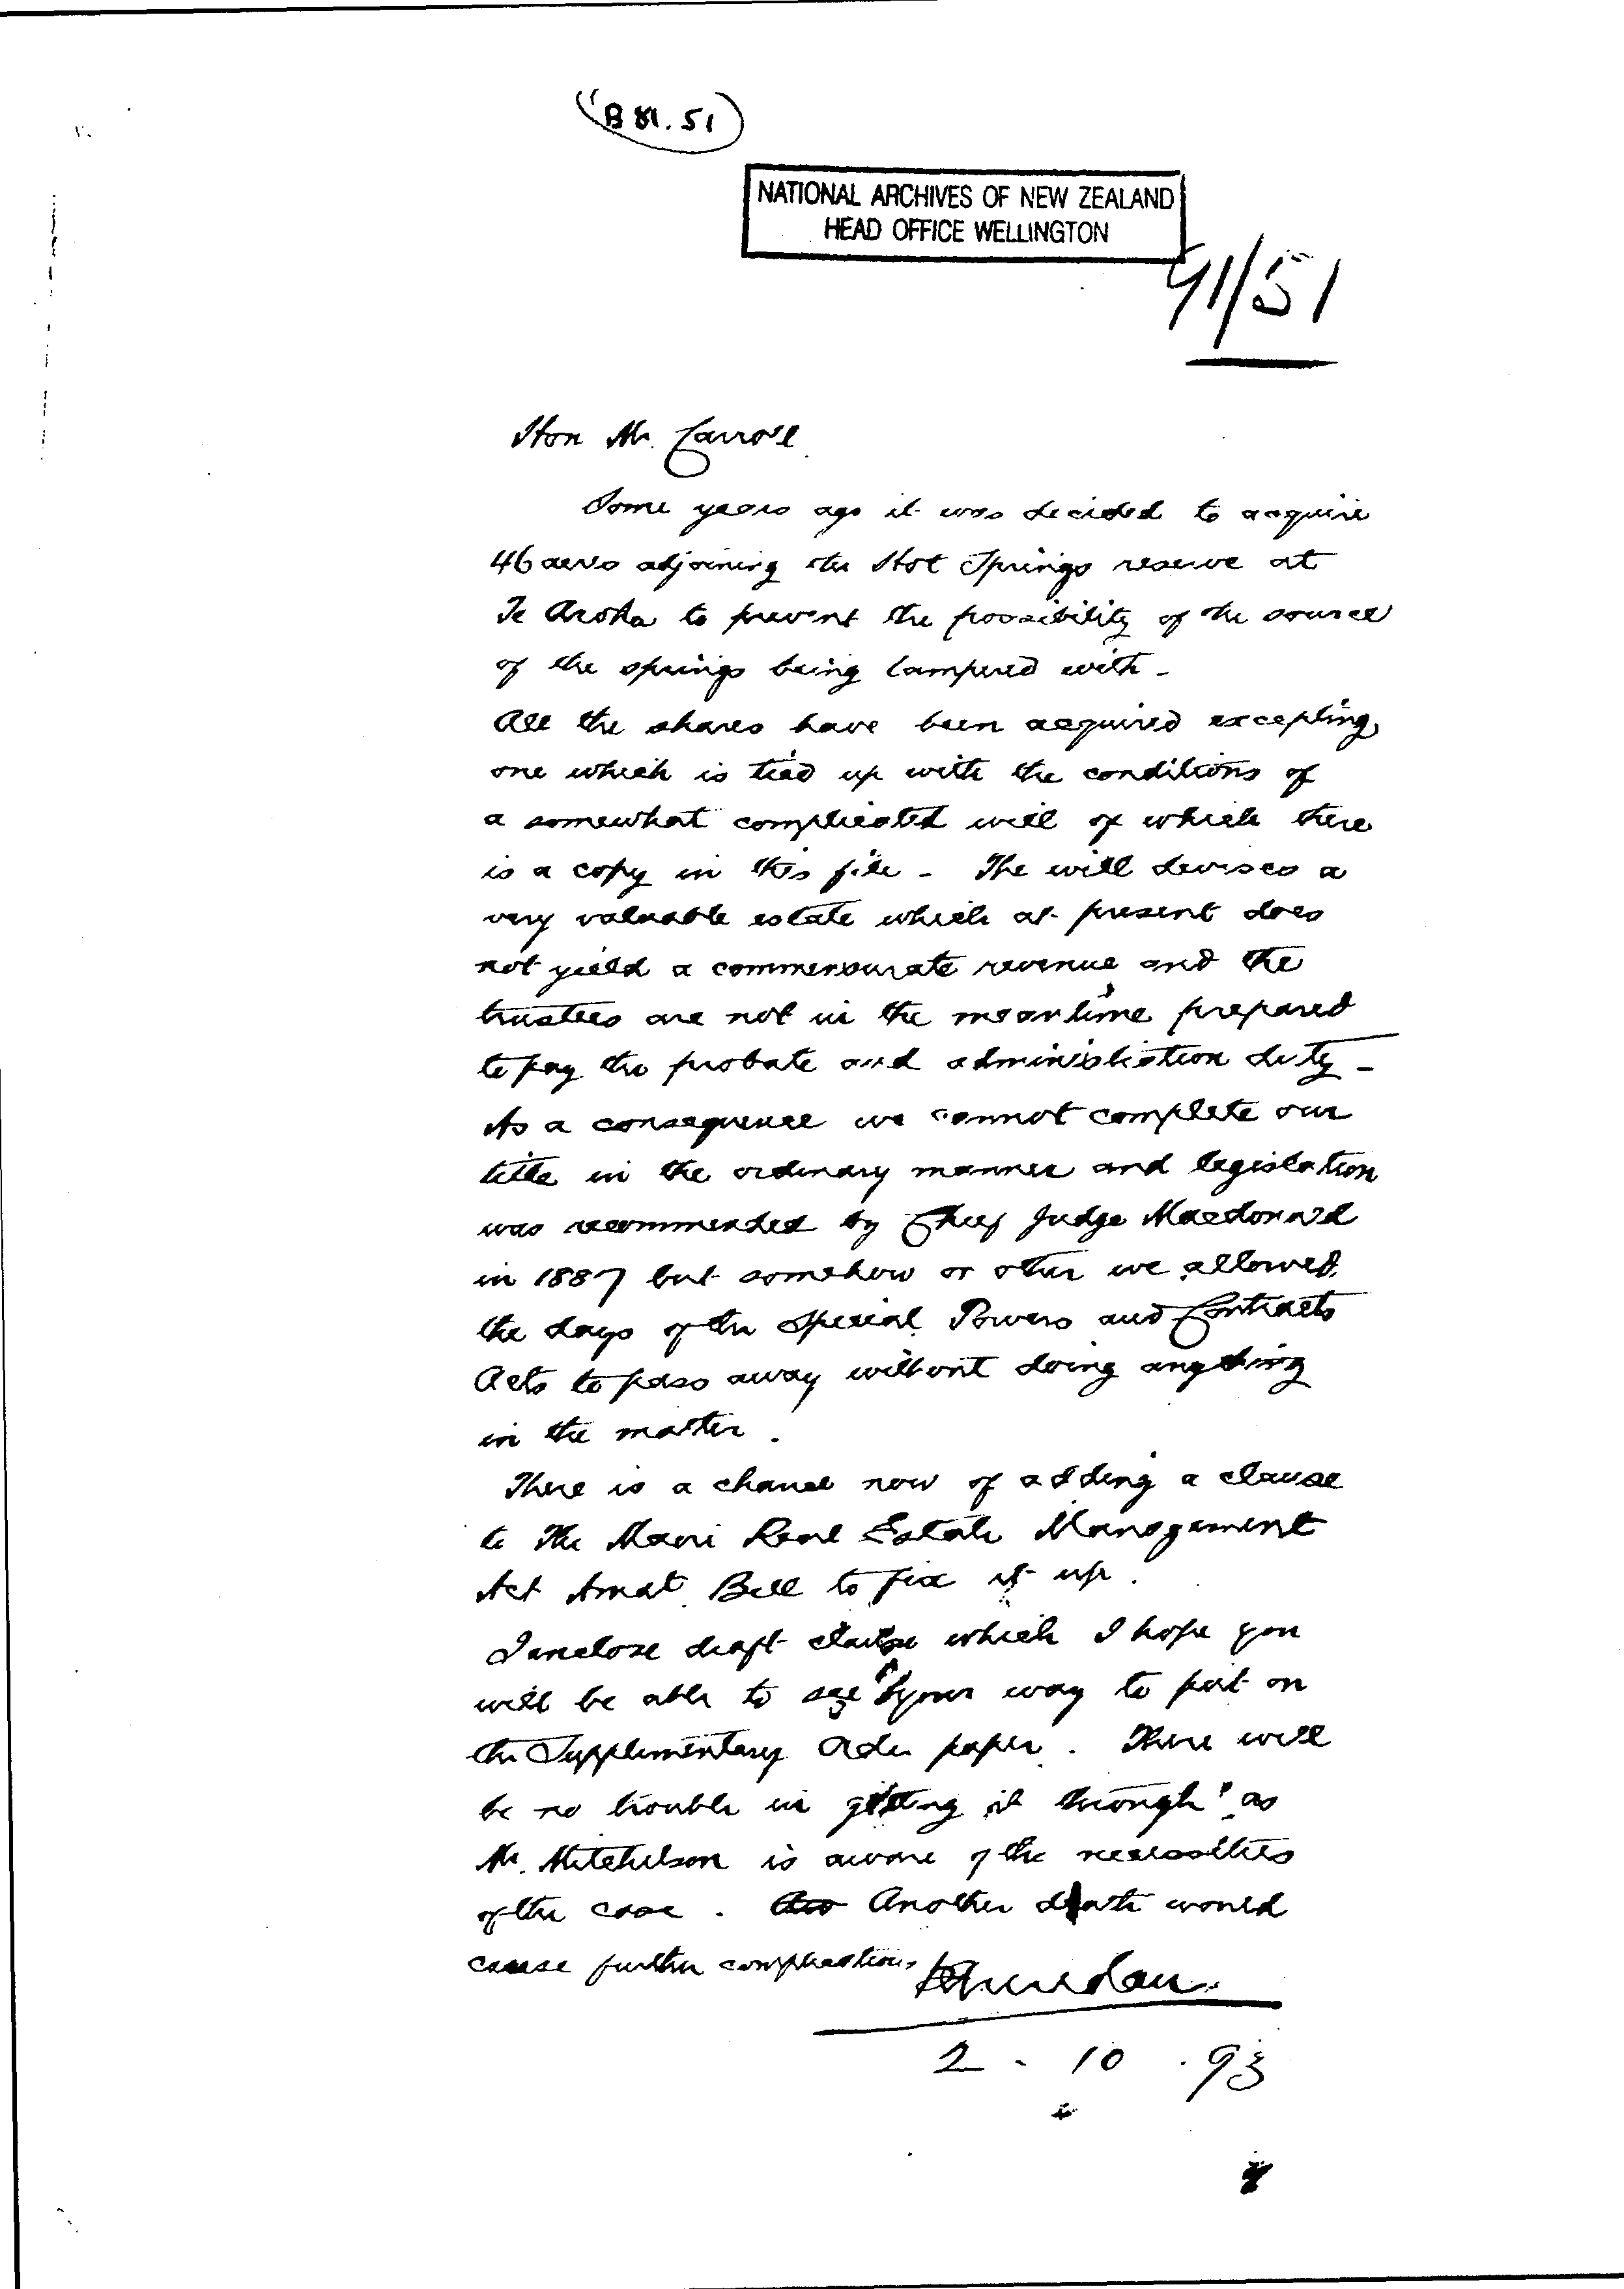 B 81.51
NATIONAL ARCHIVES OF NEW ZEALAND
HEAD OFFICE WELLINGTON
91/51
Hon Mr. Carroll
Some years ago it was decided to acquire
46 acres adjoining the Hot Springs reserve at
Te Aroha to prevent the possibility of the source
of the springs being tampered with -
All the shares have been acquired excepting
one which is tied up with the conditions of
a somewhat complicated will of which there
is a copy in this file - The will devises a
very valuable estate which at present does
not yield a commensurate revenue and the
trustees are not in the meantime prepared
to pay the probate and administration duty -
As a consequence we cannot complete our
title in the ordinary manner and legislation
was recommended by Chief Judge Macdonald
in 1887 but somehow or other we allowed
the days of the Special Powers and Contracts
Acts to pass away without doing anything
in the matter.
There is a chance now of adding a clause
to The Maori Real Estate Management
Act Amdt Bill to fix it up.
I enclose draft clause which I hope you
will be able to see your way to put on
the Supplimentary Order paper. There will
be no trouble in getting it through as
Mr. Mitchelson is aware of the necessities
of the case. Another death would
cause further complications
2 - 10 . 93